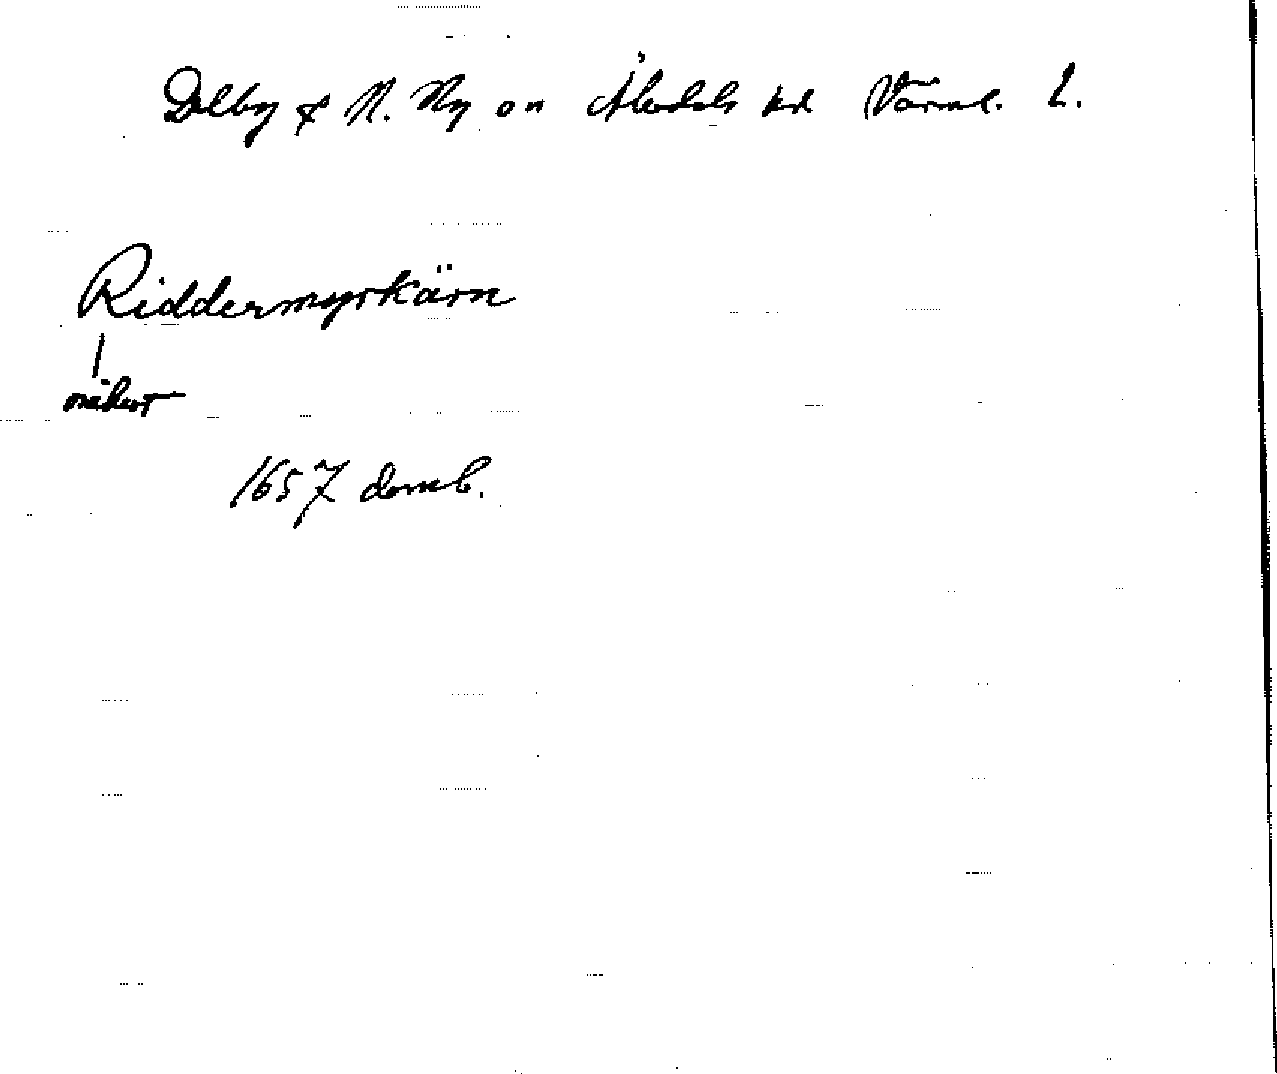 Dalby & N. Ny sn Älvdals hd Värml. l.
Riddermyrkärn
osäkert
1657 domb.